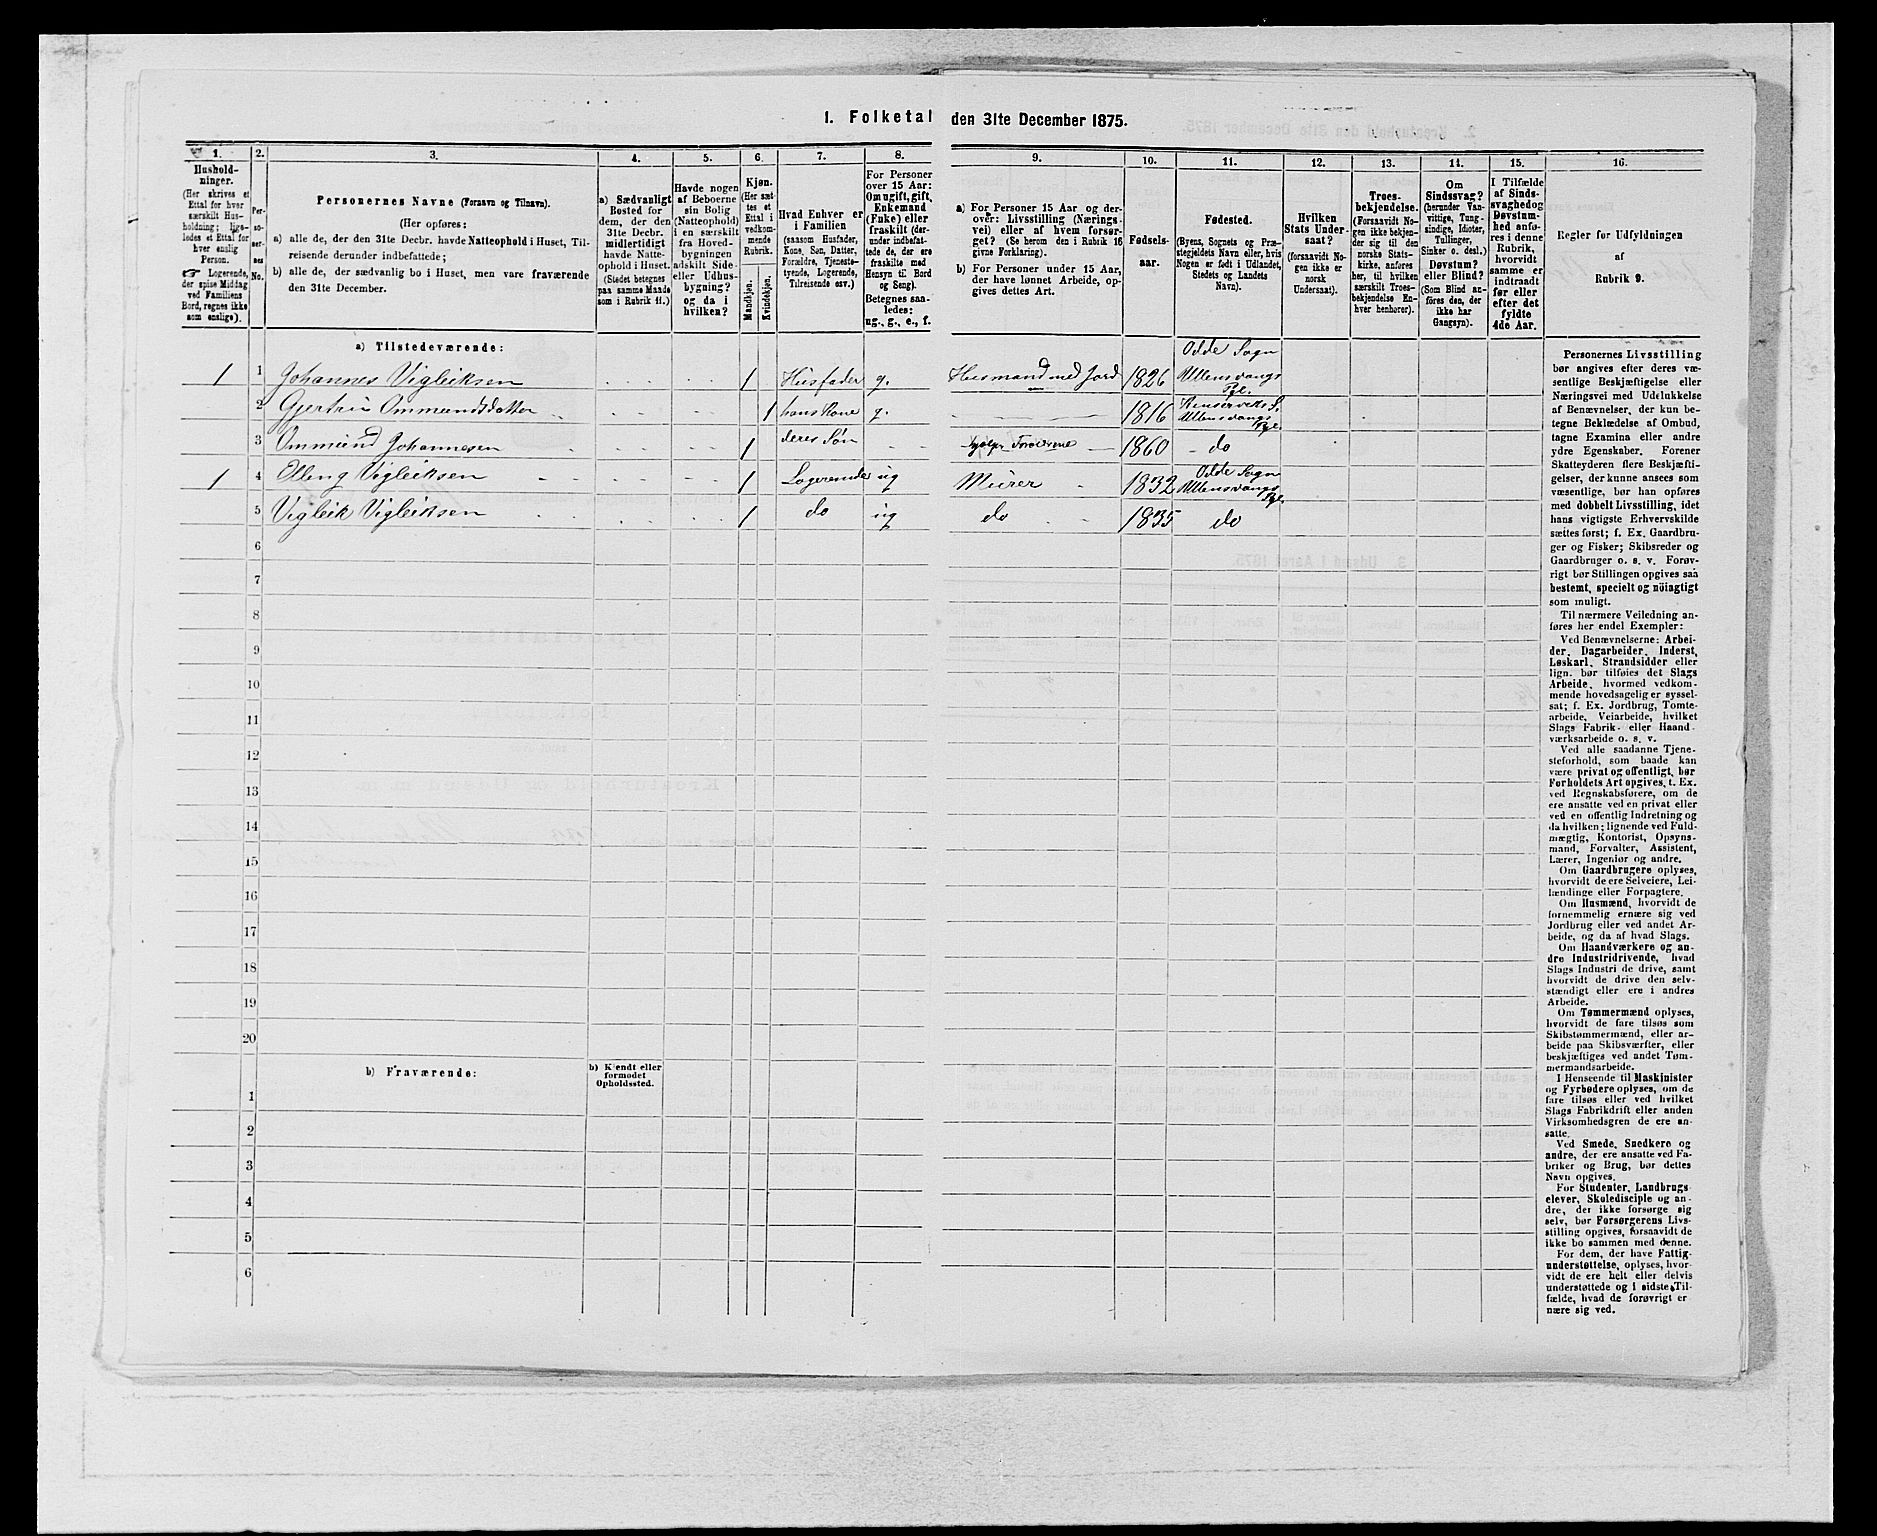 1. Folketal den 31te December 1875.
1. 2. 3. 4. 5. 6. 7. 8. 9. 10. 11. 12. 13. 14. 15. 16.
Hushold-
ninger.
(Her skrives et
Ettal for hver
særskilt Hus-
holdning; lige-
ledes et Ettal for
hver enslig
Person.
☞ Logerende,
der spise Middag
ved Familiens
Bord, regnes ikke
som enslige).
Per-
so-
ner-
nes
No.
Personernes Navne (Fornavn og Tilnavn).
(Her opføres:
a) alle de, der den 31te Decbr. havde Natteophold i Huset, Til-
reisende derunder indbefattede;
b) alle de, der sædvanlig bo i Huset, men vare fraværende
den 31te December.
a) Sædvanligt
Bosted for
dem, der den
31te Decbr.
midlertidigt
havde Natte-
ophold i Huset.
(Stedet betegnes
paa samme Maade
som i Rubrik 11.)
Havde nogen
af Beboerne
sin Bolig
(Natteophold)
i en særskilt
fra Hoved-
bygningen
adskilt Side-
eller Udhus-
bygning?
og da i
hvilken?
Kjøn.
(Her sæt-
tes et
Ettal i
vedkom-
mende
Rubrik.
Mandkjøn.
Kvindekjøn.
Hvad Enhver er
i Familien
(saasom Husfader,
Kone, Søn, Datter,
Forældre, Tjeneste-
tyende, Logerende,
Tilreisende osv.)
For Personer
over 15 Aar:
Om ugift, gift,
Enkemand
(Enke) eller
fraskilt (der-
under indbefat-
tede de, der ere
fraskilte med
Hensyn til Bord
og Seng).
Betegnes saa-
ledes:
ug., g., e., f.
a) For Personer 15 Aar og der-
over: Livsstilling (Nærings-
vei) eller af hvem forsør-
get? (Se herom den i Rubrik 16
givne Forklaring).
b) For Personer under 15 Aar,
der have lønnet Arbeide, op-
gives dettes Art.
Fødsels-
aar.
Fødested.
(Byens, Sognets og Præ-
stegjeldets Navn eller, hvis
Nogen er født i Udlandet,
Stedets og Landets
Navn).
Hvilken
Stats Under-
saat?
(forsaavidt No-
gen ikke er
norsk
Undersaat).
Troes-
bekjendelse.
(Forsaavidt No-
gen ikke bekjen-
der sig til den
norske Stats-
kirke, anføres
her, til hvilken
særskilt Troes-
bekjendelse En-
hver henhører).
Om
Sindssvag?
(herunder Van-
vittige, Tung-
sindige, Idioter,
Tullinger,
Sinker o. desl.)
Døvstum?
eller Blind?
(Som Blind an-
føres den, der
ikke har
Gangsyn).
I Tilfælde
af Sinds-
svaghed og
Døvstum-
hed anfø-
res i denne
Rubrik,
hvorvidt
samme er
indtraadt
før eller
efter det
fyldte
4de Aar.
Regler for Udfyldningen
af
Rubrik 9.
a) Tilstedeværende:
1 1 Johannes Vigleiksen 1 Husfader g. Husmand med Jord 1826 Odde Sogn Ullensvangs Pgl.
2 Gjertrui Ommundsdatter 1 hans Kone g. 1816 Kinserviks S. Ullensvangs Pgl.
3 Ommund Johannesen 1 deres Søn hjelper Forældrene 1860 do
1 4 Elling Vigleiksen 1 Logerende ug Murer 1832 Odde Sogn Ullensvangs Pgl.
5 Vigleik Vigleiksen 1 do ug do 1835 do
6
7
8
9
10
11
12
13
14
15
16
17
18
19
20
b) Fraværende:
b) Kjendt eller
formodet
Opholdssted.
1
2
3
4
5
6
Personernes Livsstilling
bør angives efter deres væ-
sentlige Beskjæftigelse eller
Næringsvei med Udelukkelse
af Benævnelser, der kun be-
tegne Beklædelse af Ombud,
tagne Examina eller andre
ydre Egenskaber. Forener
Skatteyderen flere Beskjæfti-
gelser, der kunne ansees som
væsentlige, bør han opføres
med dobbelt Livsstilling, idet
hans vigtigste Erhvervskilde
sættes først; f. Ex. Gaardbru-
ger og Fisker; Skibsreder og
Gaardbruger o. s. v. Forøv-
rigt bør Stillingen opgives saa
bestemt, specielt og nöiagtigt
som muligt.
Til nærmere Veiledning an-
føres her endel Exempler:
Ved Benævnelserne: Arbei-
der, Dagarbeider, Inderst,
Løskarl, Strandsidder eller
lign. bør tilføies det Slags
Arbeide, hvormed vedkom-
mende hovedsagelig er syssel-
sat; f. Ex. Jordbrug, Tomte-
arbeide, Veiarbeide, hvilket
Slags Fabrik- eller Haand-
værksarbeide o. s. v.
Ved alle saadanne Tjene-
steforhold, som baade kan
være privat og offentligt, bør
Forholdets Art opgives, t. Ex.
ved Regnskabsførere, om de
ere ansatte ved en privat eller
ved en offentlig Indretning og
da hvilken; lignende ved Fuld-
mægtig, Kontorist, Opsyns-
mand, Forvalter, Assistent,
Lærer, Ingeniør og andre.
Om Gaardbrugere oplyses,
hvorvidt de ere Selveiere, Lei-
lændinge eller Forpagtere.
Om Husmænd, hvorvidt de
fornemmelig ernære sig ved
Jordbrug eller ved andet Ar-
beide, og da af hvad Slags.
Om Haandværkere og an-
dre Industridrivende, hvad
Slags Industri de drive, samt
hvorvidt de drive den selv-
stændigt eller ere i andres
Arbeide.
Om Tømmermænd oplyses,
hvorvidt de fare tilsøs som
Skibstømmermænd, eller ar-
beide paa Skibsværfter, eller
beskjæftiges ved andet Tøm-
mermandsarbeide.
I Henseende til Maskinister
og Fyrbødere oplyses, om de
fare tilsøs eller ved hvilket
Slags Fabrikdrift eller anden
Virksomhedsgren de ere an-
satte.
Ved Smede, Snedkere og
andre, der ere ansatte ved Fa-
briker og Brug, bør dettes
Navn opgives.
For Studenter, Landbrugs-
elever, Skoledisciple og an-
dre, der ikke forsørge sig
selv, bør Forsørgerens Livs-
stilling opgives, forsaavidt de
ikke bo sammen med denne.
For dem, der have Fattig-
understøttelse, oplyses, hvor-
vidt de ere helt eller delvis
understøttede og i sidste Til-
fælde, hvad de forøvrigt er-
nære sig ved.